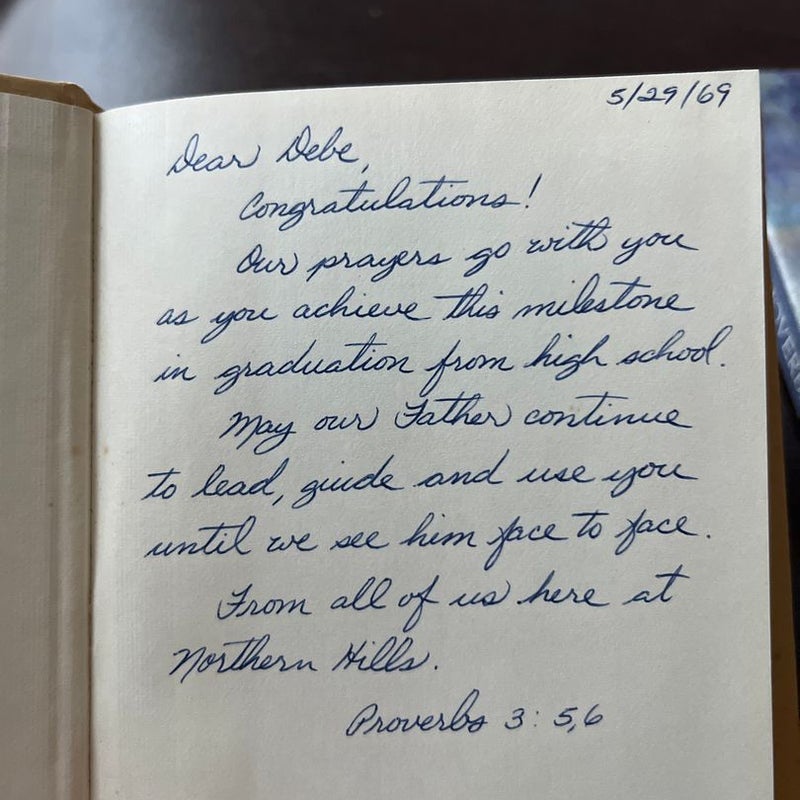 5/29/69
Dear Debe,
Congratulations!
Our prayers go with you
as you achieve this milestone
in graduation from high school.
May our Father continue
to lead, guide and use you
until we see him face to face.
From all of us here at
Northern Hills.
Proverbs 3:5,6